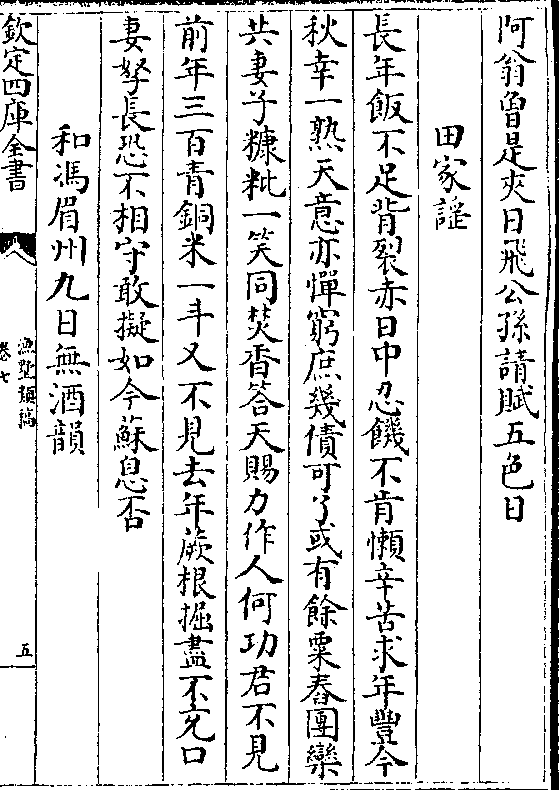 阿翁曾是夾日飛公孫請賦五色日
田家謡
長年飯不足背裂赤日中忍饑不肯懶辛苦求年豐今
秋幸一熟天意亦憚窮庶幾債可了或有餘粟舂團欒
共妻子糠粃一笑同焚香答天賜力作人何功君不見
前年三百青銅米一斗又不見去年蕨根掘盡不充口
妻孥長恐不相守敢擬如今蘇息否
和馮眉州九日無酒韻
欽定四庫全書
漁墅類稿
卷七
五